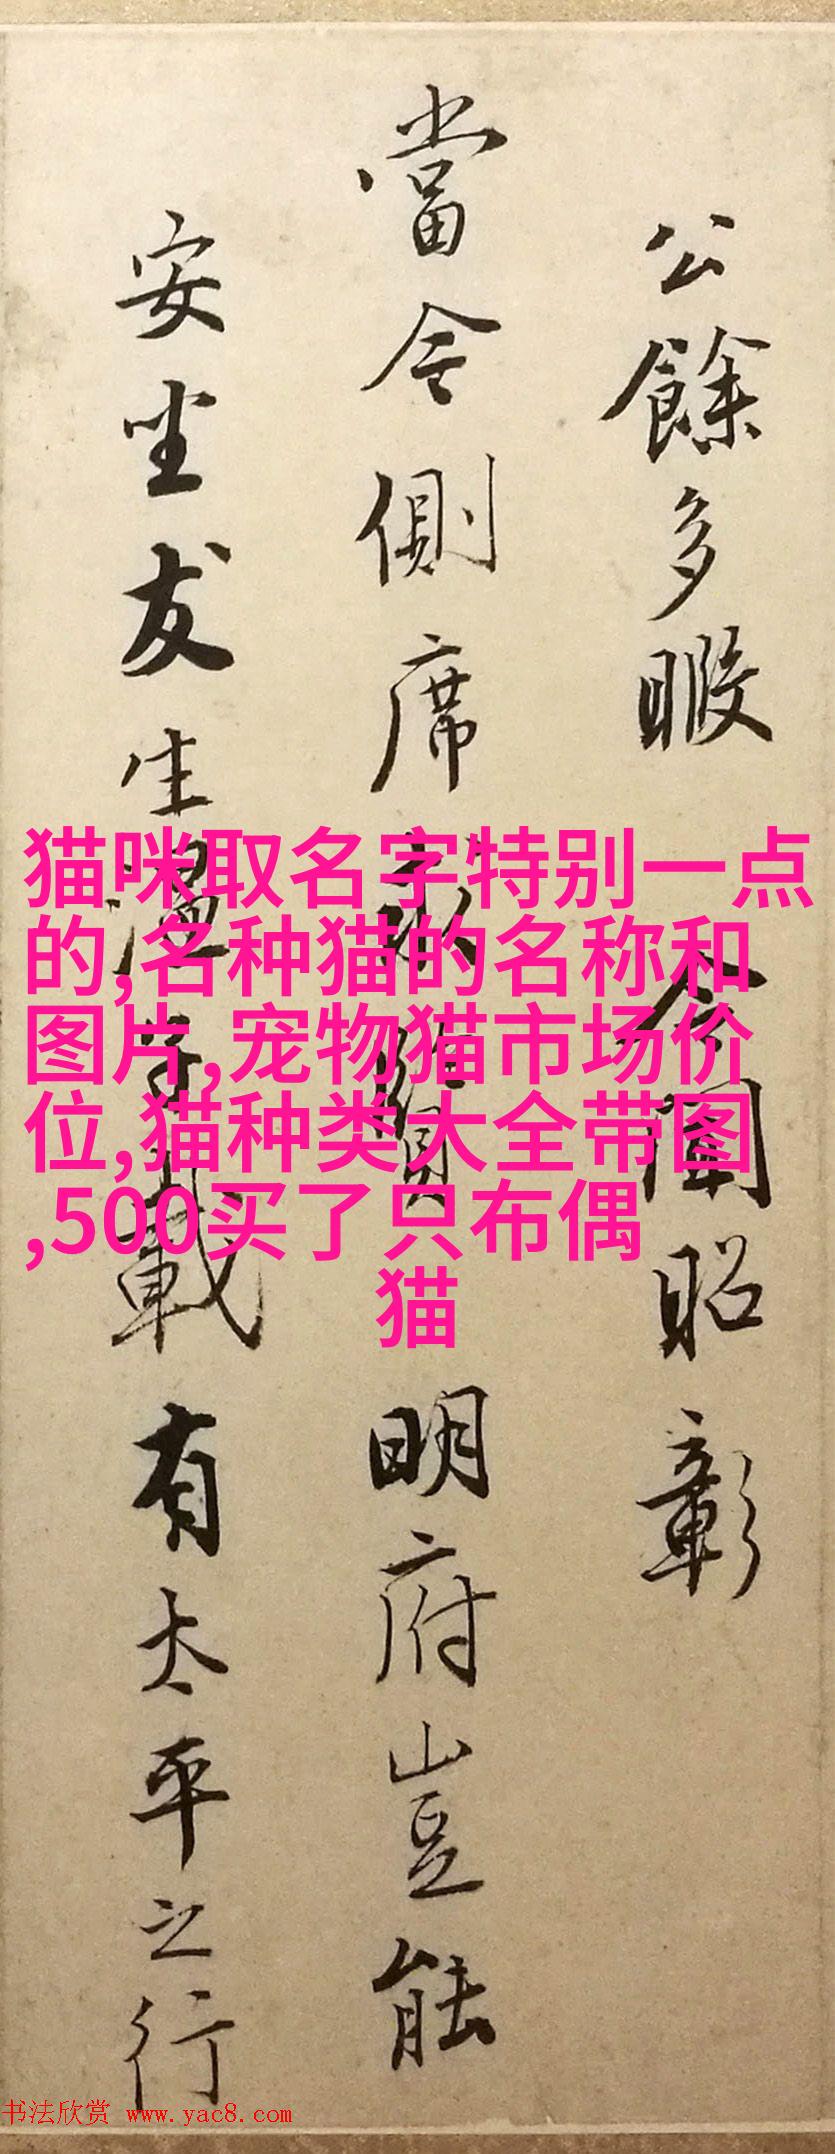 公餘多暇 令聞昭彰
當今側席求賢 明府豈能
安坐友生温載有太平之行
猫咪取名字特别一点
的,名种猫的名称和
图片,宠物猫市场价
位,猫种类大全带图
,500买了只布偶
猫
书法欣赏 www.yac8.com